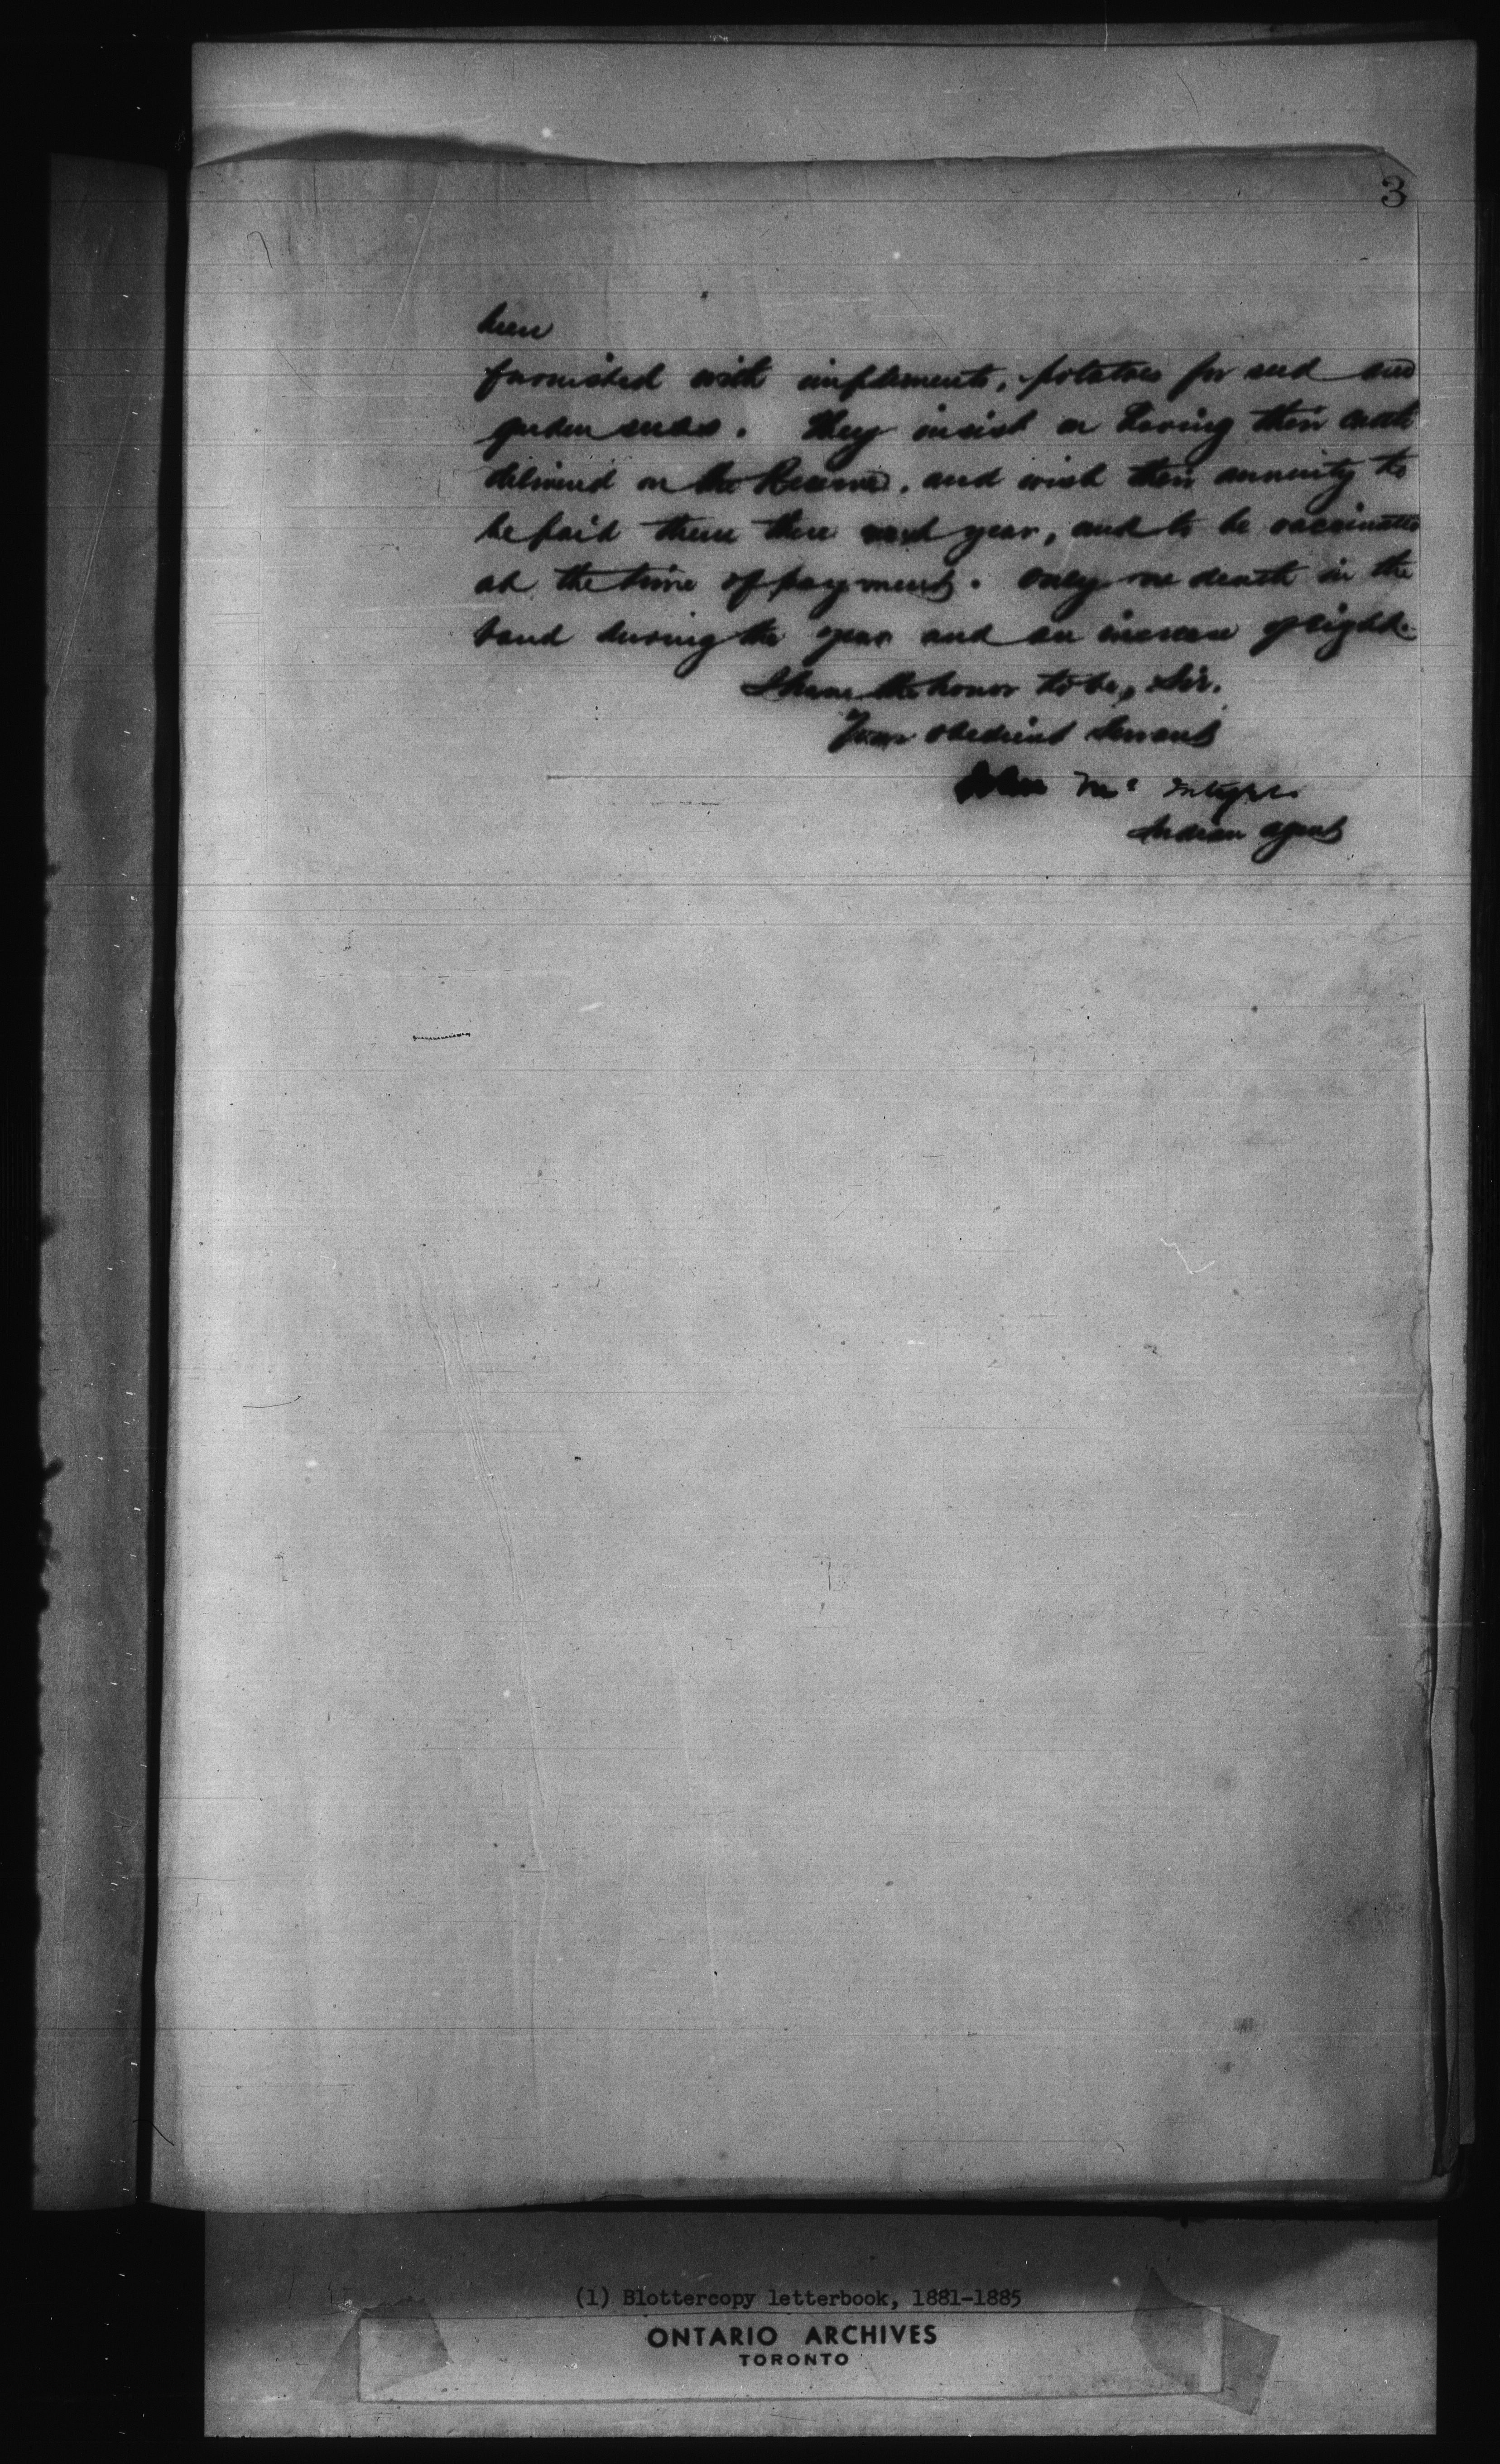 3
been
furnished with implements, potatoes for seed and
garden seeds. They insist on having their cattle
delivered on the Reserve, and wish their annuity to
be paid them there next year, and to be vaccinated
at the time of payment. Only one death in the
band during the year and an increase of eight.
I have the honor to be, Sir,
Your obedient Servant
John Mc Intyre
Indian Agent
(1) Blottercopy letterbook, 1881-1885
ONTARIO ARCHIVES
TORONTO